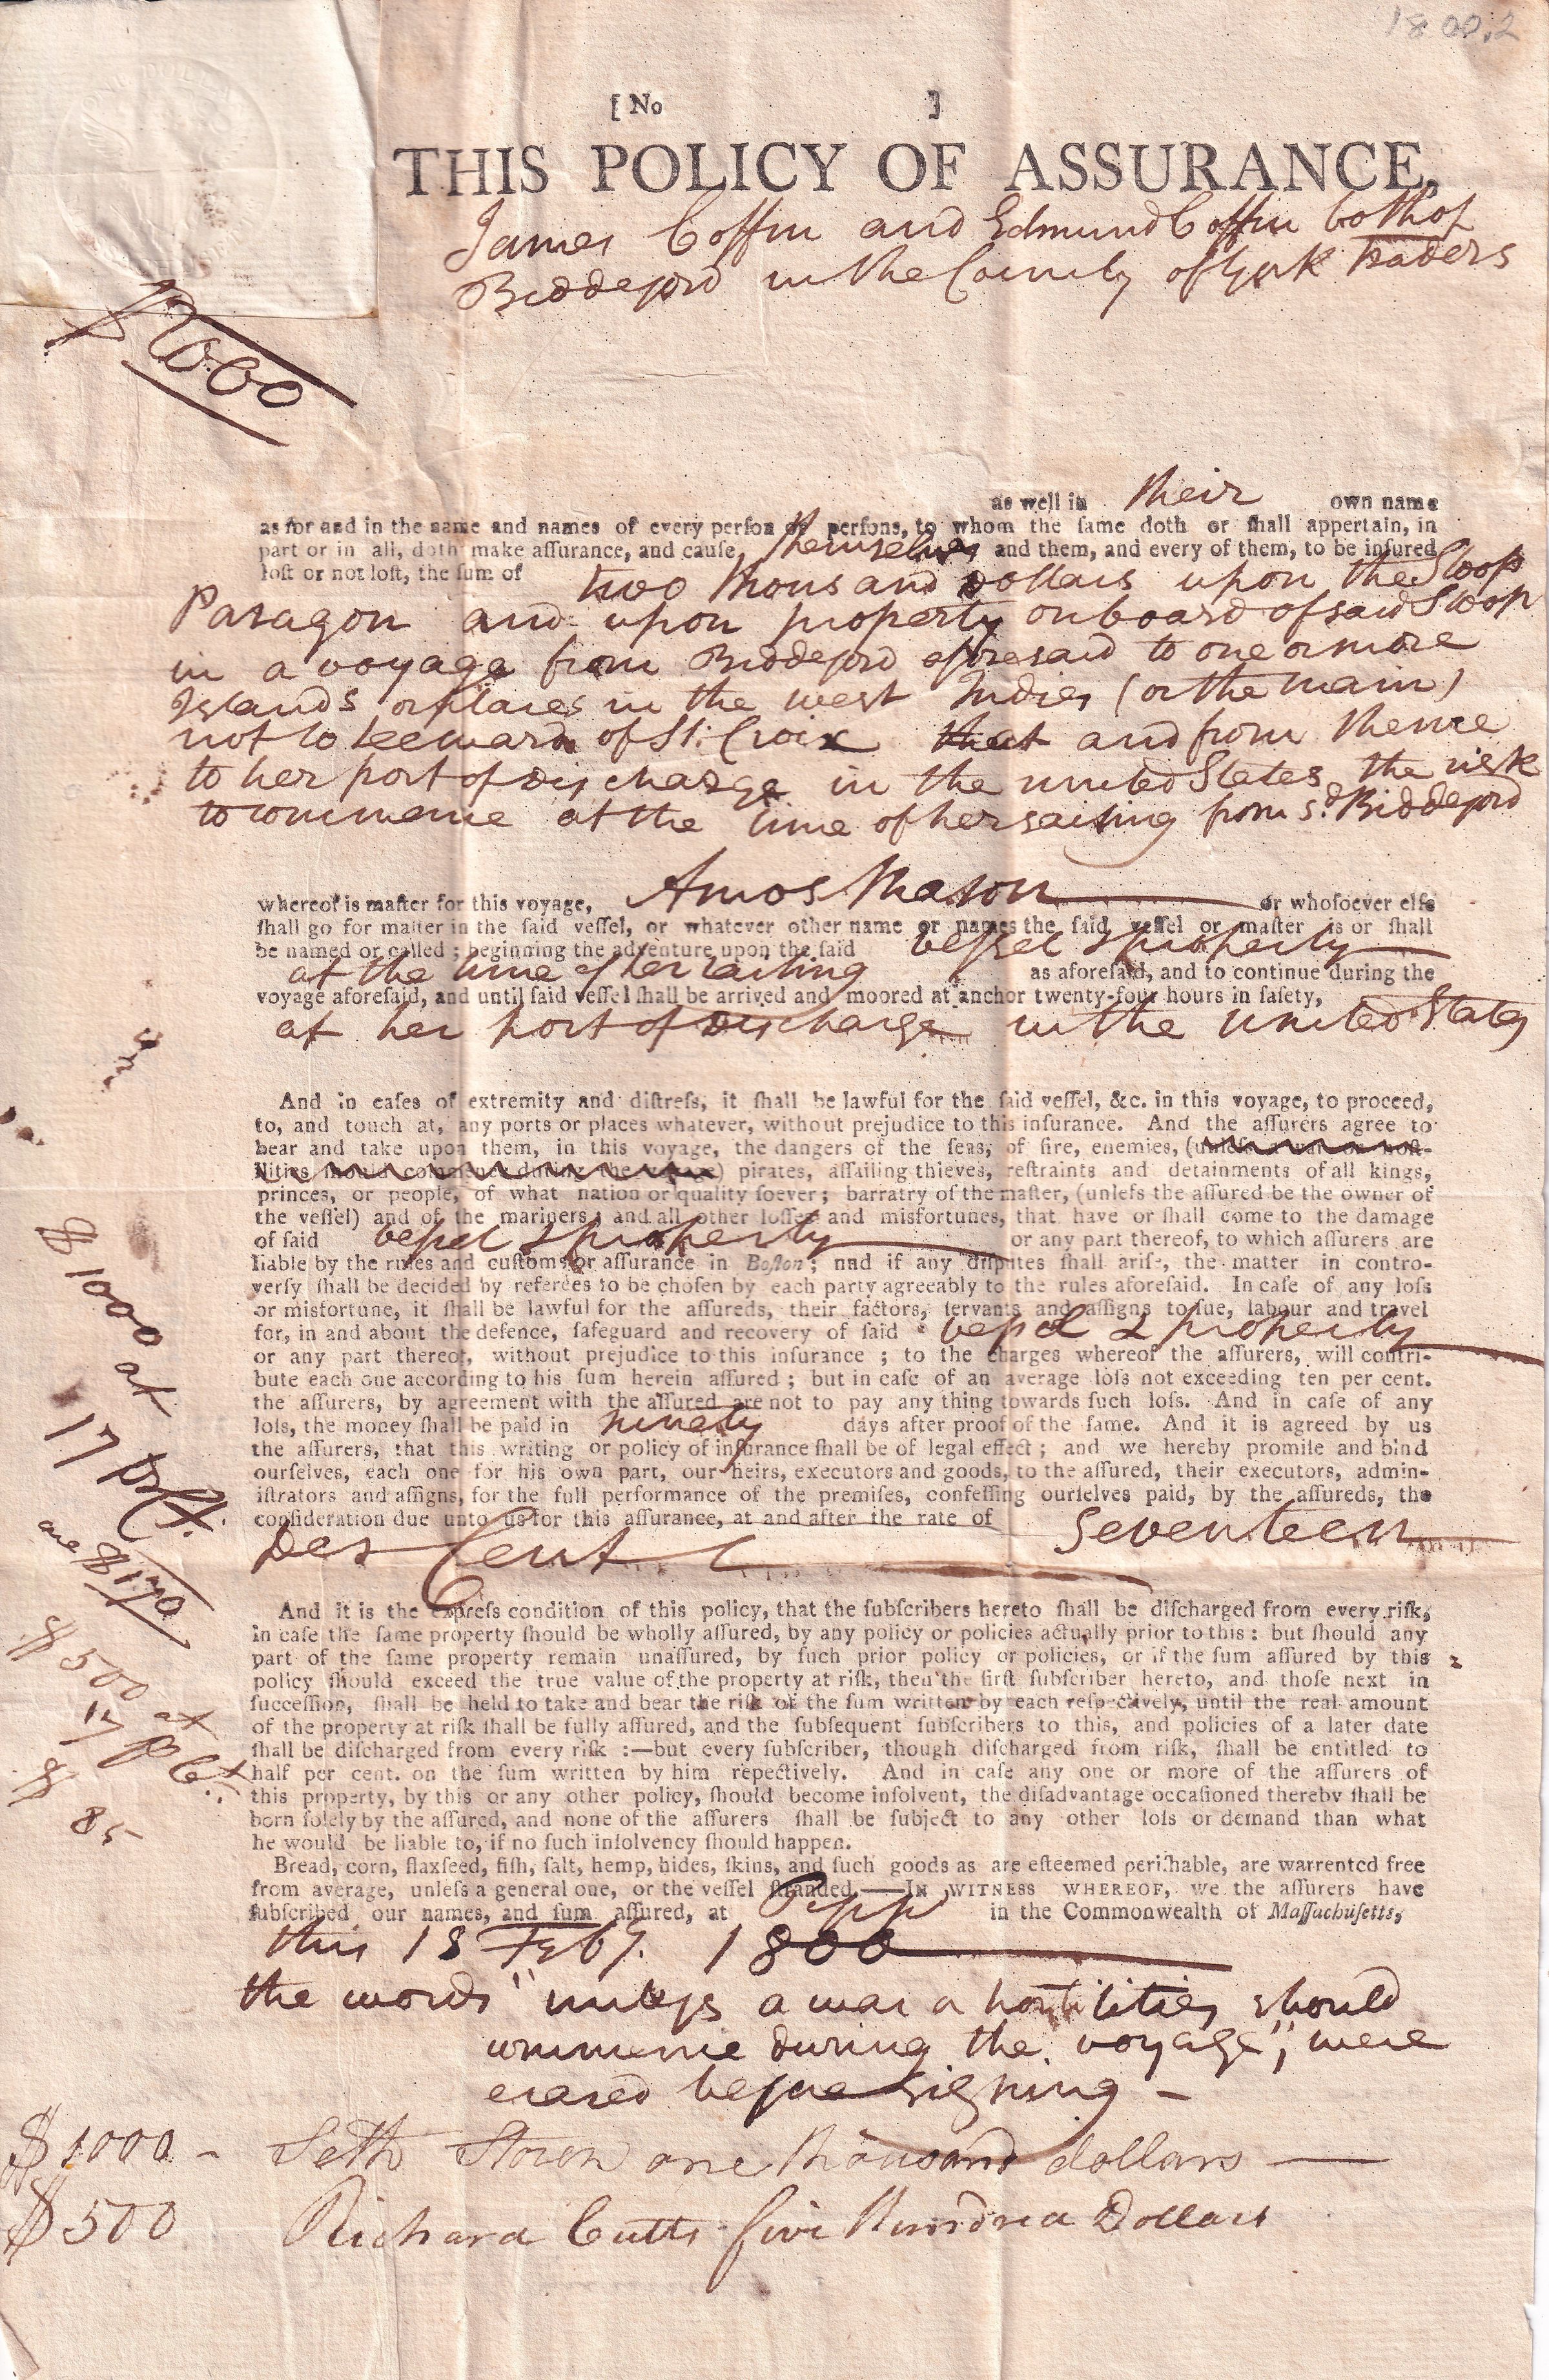 1800.2
[ No ]
THIS POLICY OF ASSURANCE,
James Coffin and Edmund Coffin both of
Biddeford in the County of York traders
$2000
as well in their own name
as for and in the name and names of every perſon or perſons, to whom the ſame doth or ſhall appertain, in
part or in all, doth make aſſurance, and cauſe, themselves and them, and every of them, to be inſured
loſt or not loſt, the ſum of two thousand dollars upon the Sloop
Paragon and upon property on board of said Sloop
in a voyage from Biddeford aforesaid to one or more
Islands or places in the west Indies (or the main)
not to Leeward of St. Croix that and from thence
to her port of discharge in the united States the risk
to commence at the time of her sailing from sd. Biddeford
whereof is maſter for this voyage, Amos Mason or whoſoever elſe
ſhall go for maſter in the ſaid veſſel, or whatever other name or names the ſaid veſſel or maſter is or ſhall
be named or called ; beginning the adventure upon the ſaid veſsel & property
at the time of her sailing as aforeſaid, and to continue during the
voyage aforeſaid, and until ſaid veſſel ſhall be arrived and moored at anchor twenty-four hours in ſafety,
at her port of discharge in the united States
And in caſes of extremity and diſtreſs, it ſhall be lawful for the ſaid veſſel, &c. in this voyage, to proceed,
to, and touch at, any ports or places whatever, without prejudice to this inſurance. And the aſſurers agree to
bear and take upon them, in this voyage, the dangers of the ſeas, of fire, enemies, (unleſs a war or hoſt-
ilities ſhould commence during the voyage) pirates, aſſailing thieves, reſtraints and detainments of all kings,
princes, or people, of what nation or quality ſoever ; barratry of the maſter, (unleſs the aſſured be the owner of
the veſſel) and of the mariners ; and all other loſſes and misfortunes, that have or ſhall come to the damage
of ſaid veſsel & property or any part thereof, to which aſſurers are
liable by the rules and cuſtoms or aſſurance in Boſton ; and if any diſputes ſhall ariſe, the matter in contro-
verſy ſhall be decided by referees to be choſen by each party agreeably to the rules aforeſaid. In caſe of any loſs
or misfortune, it ſhall be lawful for the aſſureds, their factors, ſervants and aſſigns to ſue, labour and travel
for, in and about the defence, ſafeguard and recovery of ſaid veſsel & property
or any part thereof, without prejudice to this inſurance ; to the charges whereof the aſſurers, will contri-
bute each one according to his ſum herein aſſured ; but in caſe of an average loſs not exceeding ten per cent.
the aſſurers, by agreement with the aſſured are not to pay any thing towards ſuch loſs. And in caſe of any
loſs, the money ſhall be paid in ninety days after proof of the ſame. And it is agreed by us
the aſſurers, that this writing or policy of inſurance ſhall be of legal effect ; and we hereby promiſe and bind
ourſelves, each one for his own part, our heirs, executors and goods, to the aſſured, their executors, admin-
iſtrators and aſſigns, for the full performance of the premiſes, confeſſing ourſelves paid, by the aſſureds, the
conſideration due unto us for this aſſurance, at and after the rate of seventeen
per Cent
And it is the expreſs condition of this policy, that the ſubſcribers hereto ſhall be diſcharged from every riſk,
in caſe the ſame property ſhould be wholly aſſured, by any policy or policies actually prior to this : but ſhould any
part of the ſame property remain unaſſured, by ſuch prior policy or policies, or if the ſum aſſured by this
policy ſhould exceed the true value of the property at riſk, then the firſt ſubſcriber hereto, and thoſe next in
ſucceſſion, ſhall be held to take and bear the riſk of the ſum written by each reſpectively, until the real amount
of the property at riſk ſhall be fully aſſured, and the ſubſequent ſubſcribers to this, and policies of a later date
ſhall be diſcharged from every riſk :—but every ſubſcriber, though diſcharged from riſk, ſhall be entitled to
half per cent. on the ſum written by him repectively. And in caſe any one or more of the aſſurers of
this property, by this or any other policy, ſhould become inſolvent, the diſadvantage occaſioned thereby ſhall be
born ſolely by the aſſured, and none of the aſſurers ſhall be ſubject to any other loſs or demand than what
he would be liable to, if no ſuch inſolvency ſhould happen.
Bread, corn, flaxſeed, fiſh, ſalt, hemp, hides, ſkins, and ſuch goods as are eſteemed periſhable, are warrented free
from average, unleſs a general one, or the veſſel ſtranded.——IN WITNESS WHEREOF, we the aſſurers have
ſubſcribed our names, and ſum aſſured, at Pepp in the Commonwealth of Maſſachuſetts,
this 18 Feby. 1800
the words "unleſs a war or hostilities should
commence during the voyage", were
erased before signing -
$1000 - Seth Storer one thousand dollars
$500 Richard Cutts five Hundred Dollars
$1000 at
17 pr Ct.
are $170
$500 at
17 p Ct.
$ 85